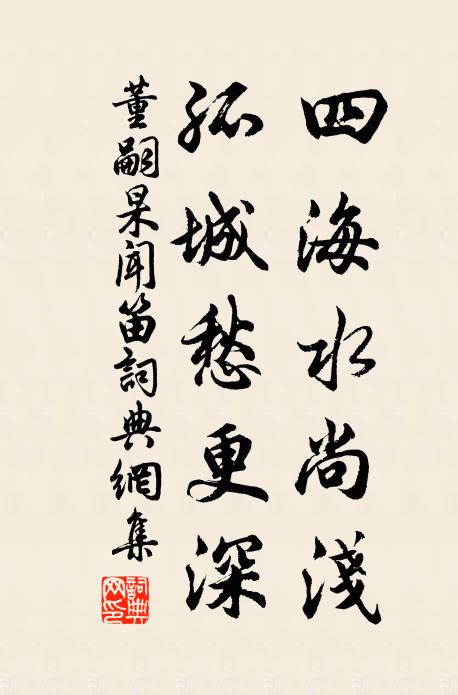 四海水尚淺
孤城愁更深
董嗣杲聞笛詞典網集
詞典網印